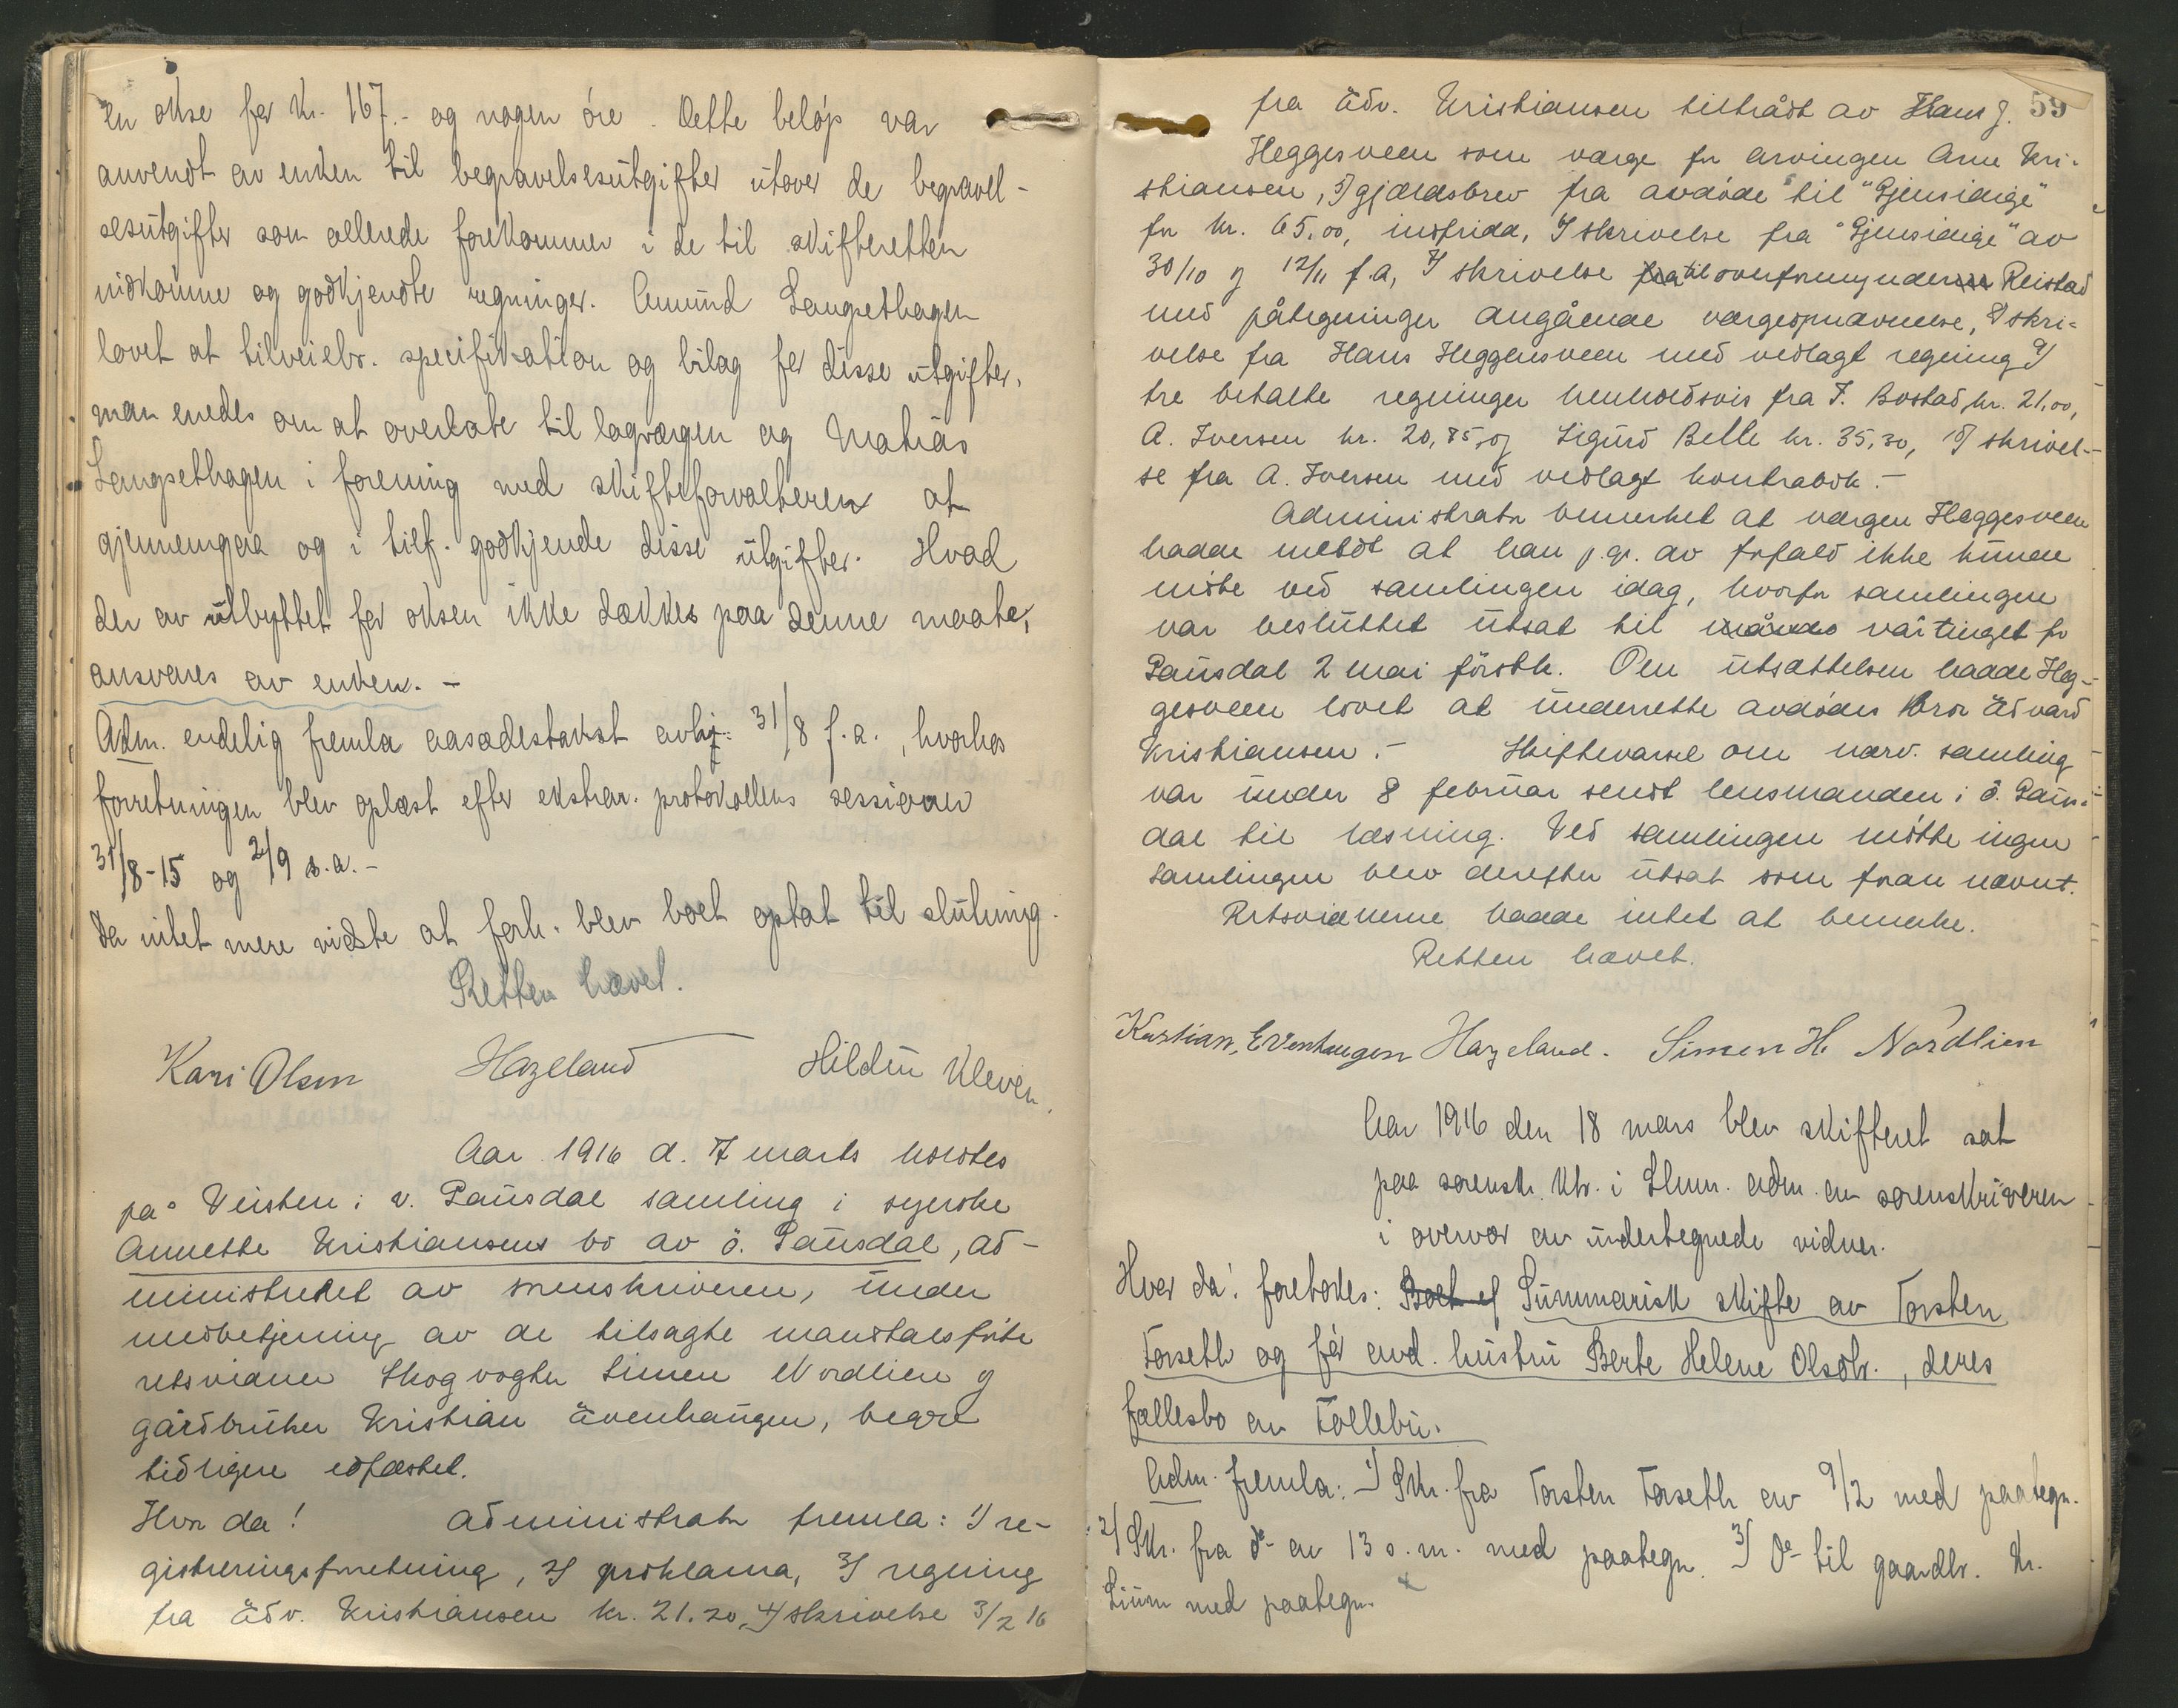 en okse for kr. 167.- og nogen öre. Dette belöp var
anvendt av enken til begravelsesutgifter utover de begravel-
sesutgifter som allerede forekommer i de til skifteretten
indkomne og godkjendte regninger. Amund Langsethagen
lovet at tilveiebr. specifikation og bilag for disse utgifter,
man enedes om at overlate til lagvergen og Mathias
Langsethagen i forening med skifteforvalteren at
gjennemgaa og i tilf. godkjende disse utgifter. Hvad
der av utbyttet for oksen ikke dækkes paa denne maate,
ansvares av enken. -
Adm. endelig fremla aasædestakst avhj. 31/8 f.a., hvorhos
forretningen blev oplæst efter ekstrar. protokollens sessioner
31/8-15 og 2/9 s.a.-
Da intet mere vidste at forh. blev boet optat til slutning.
Retten hævet.
Kari Olsen Hazeland Hildin Kleven.
Aar 1916 d. 7 marts holdtes
på Veisten i v. Gausdal samling i syerske
Annette Kristiansens bo av ö. Gausdal, ad-
ministreret av sorenskriveren, under
medbetjening av de tilsagte mandtalsförte
retsvidner Skogvogter Simen Nordlien og
gårdbruker Kristian Ävenhaugen, begge
tidligere edfæstet.
Hvor da! Administrator fremla: 1) re-
gistreringsforretning, 2) proklama, 3) regning
fra Edv. Kristiansen kr. 21.20, 4) skrivelse 3/2 16
59
fra Edv. Kristiansen tiltrådt av Hans J.
Heggesveen som værge for arvingen Arne Kri-
stiansen, 5) gjældsbrev fra avdöde til "Gjensidige"
for kr. 65,00, insfridd, 6) skrivelse fra "Gjensidige" av
30/10 og 12/11 f.a, 7) skrivelse fra til overformynder Reistad
med påtegninger angående værgeopnævnelse, 8) skri-
velse fra Hans Heggesveen med vedlagt regning 9)
tre betalte regninger henholdsvis fra F. Bostad kr. 21,00,
A. Iversen kr. 20,85, og Sigurd Belle kr. 35,30, 10) skrivel-
se fra A. Iversen med vedlagt kontrabok.-
Administrator bemerket at værgen Heggesveen
hadde meldt at han p.gr. av forfald ikke kunde
möte ved samlingen idag, hvorfor samlingen
var besluttet utsat til vårtinget for
Gausdal 2 mai förstk. Om utsættelsen hadde Heg-
gesveen lovet at underrette avdödes bror Edvard
Kristiansen.- Skiftevarsel om nærv. samling
var under 8 februar sendt lensmanden i ö. Gaus-
dal til læsning. Ved samlingen mötte ingen
Samlingen blev derefter utsat som foran nævnt.
Retsvidnerne hadde intet at bemerke.
Retten hævet.
Kristian, Evenhaugen Hazeland. Simen H. Nordlien
Aar 1916 den 18 mars blev skifteret sat
paa sorensk. ktr. i Lhmr. adm. av sorenskriveren
i overvær av undertegnede vidner.
Hvor da! foretokes: Boet ef Summarisk skifte av Torsten
Forseth og för avd. hustru Berte Helene Olsdtr., deres
fællesbo av Follebu.
Adm. fremla: 1) Skr. fra Torsten Forseth av 9/2 med paategn.
2) Skr. fra do av 13 s.m. med paategn. 3) Do til gaardbr. Kr.
Lium med paategn.